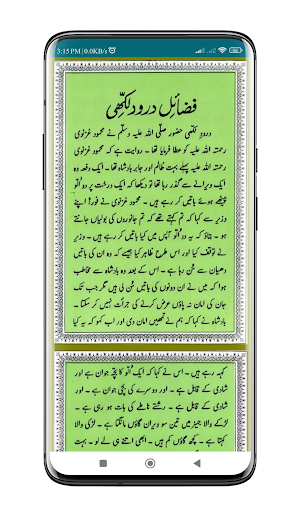 3:15 PM | 0.0KB/s
فضائلِ درود لکھی
درودِ لکھی حضور صلی اللہ علیہ وسلم نے محمود غزنوی
رحمتہ اللہ علیہ کو عطا فرمایا تھا ۔ روایت ہے کہ محمود غزنوی
رحمتہ اللہ علیہ پہلے بہت ظالم اور جابر بادشاہ تھا ۔ ایک دفعہ وہ
ایک ویرانے سے گذر رہا تھا تو دیکھا کہ ایک درخت پر دو اُلّو
بیٹھے ہوئے باتیں کر رہے ہیں ۔ محمود غزنوی نے فوراً اپنے
وزیر سے کہا کہ تم کہتے تھے کہ تم جانوروں کی بولیاں جانتے
ہو ۔ بتاؤ کہ یہ دو اُلّو آپس میں کیا باتیں کر رہے ہیں ۔ وزیر
نے توقف کیا اور اس طرح ظاہر کیا جیسے کہ وہ ان کی باتیں
دھیان سے سُن رہا ہے ۔ اس کے بعد وہ بادشاہ سے مخاطب
ہوا کہ میں نے ان دونوں کی باتیں سُن لی ہیں مگر جب تک
جان کی امان نہ پاؤں عرض کرنے کی جرأت نہیں کر سکتا ۔
بادشاہ نے کہا کہ ہم نے تمہیں امان دی اور اب کہو کہ یہ کیا
کہہ رہے ہیں ۔ اس نے کہا کہ ایک اُلّو کا بچّہ جوان ہے اور
شادی کے قابل ہے ۔ اور دوسرے کی بچی جوان ہے اور
شادی کے قابل ہے ۔ رشتے ناطے کی بات ہو رہی ہے ۔
لڑکے والا جہیز میں تین سو ویران گاؤں مانگتا ہے ۔ لڑکی والا
کہتا ہے ۔ کچھ گاؤں کم ہیں ۔ ابھی اتنے ہی لے لو ۔ بہت